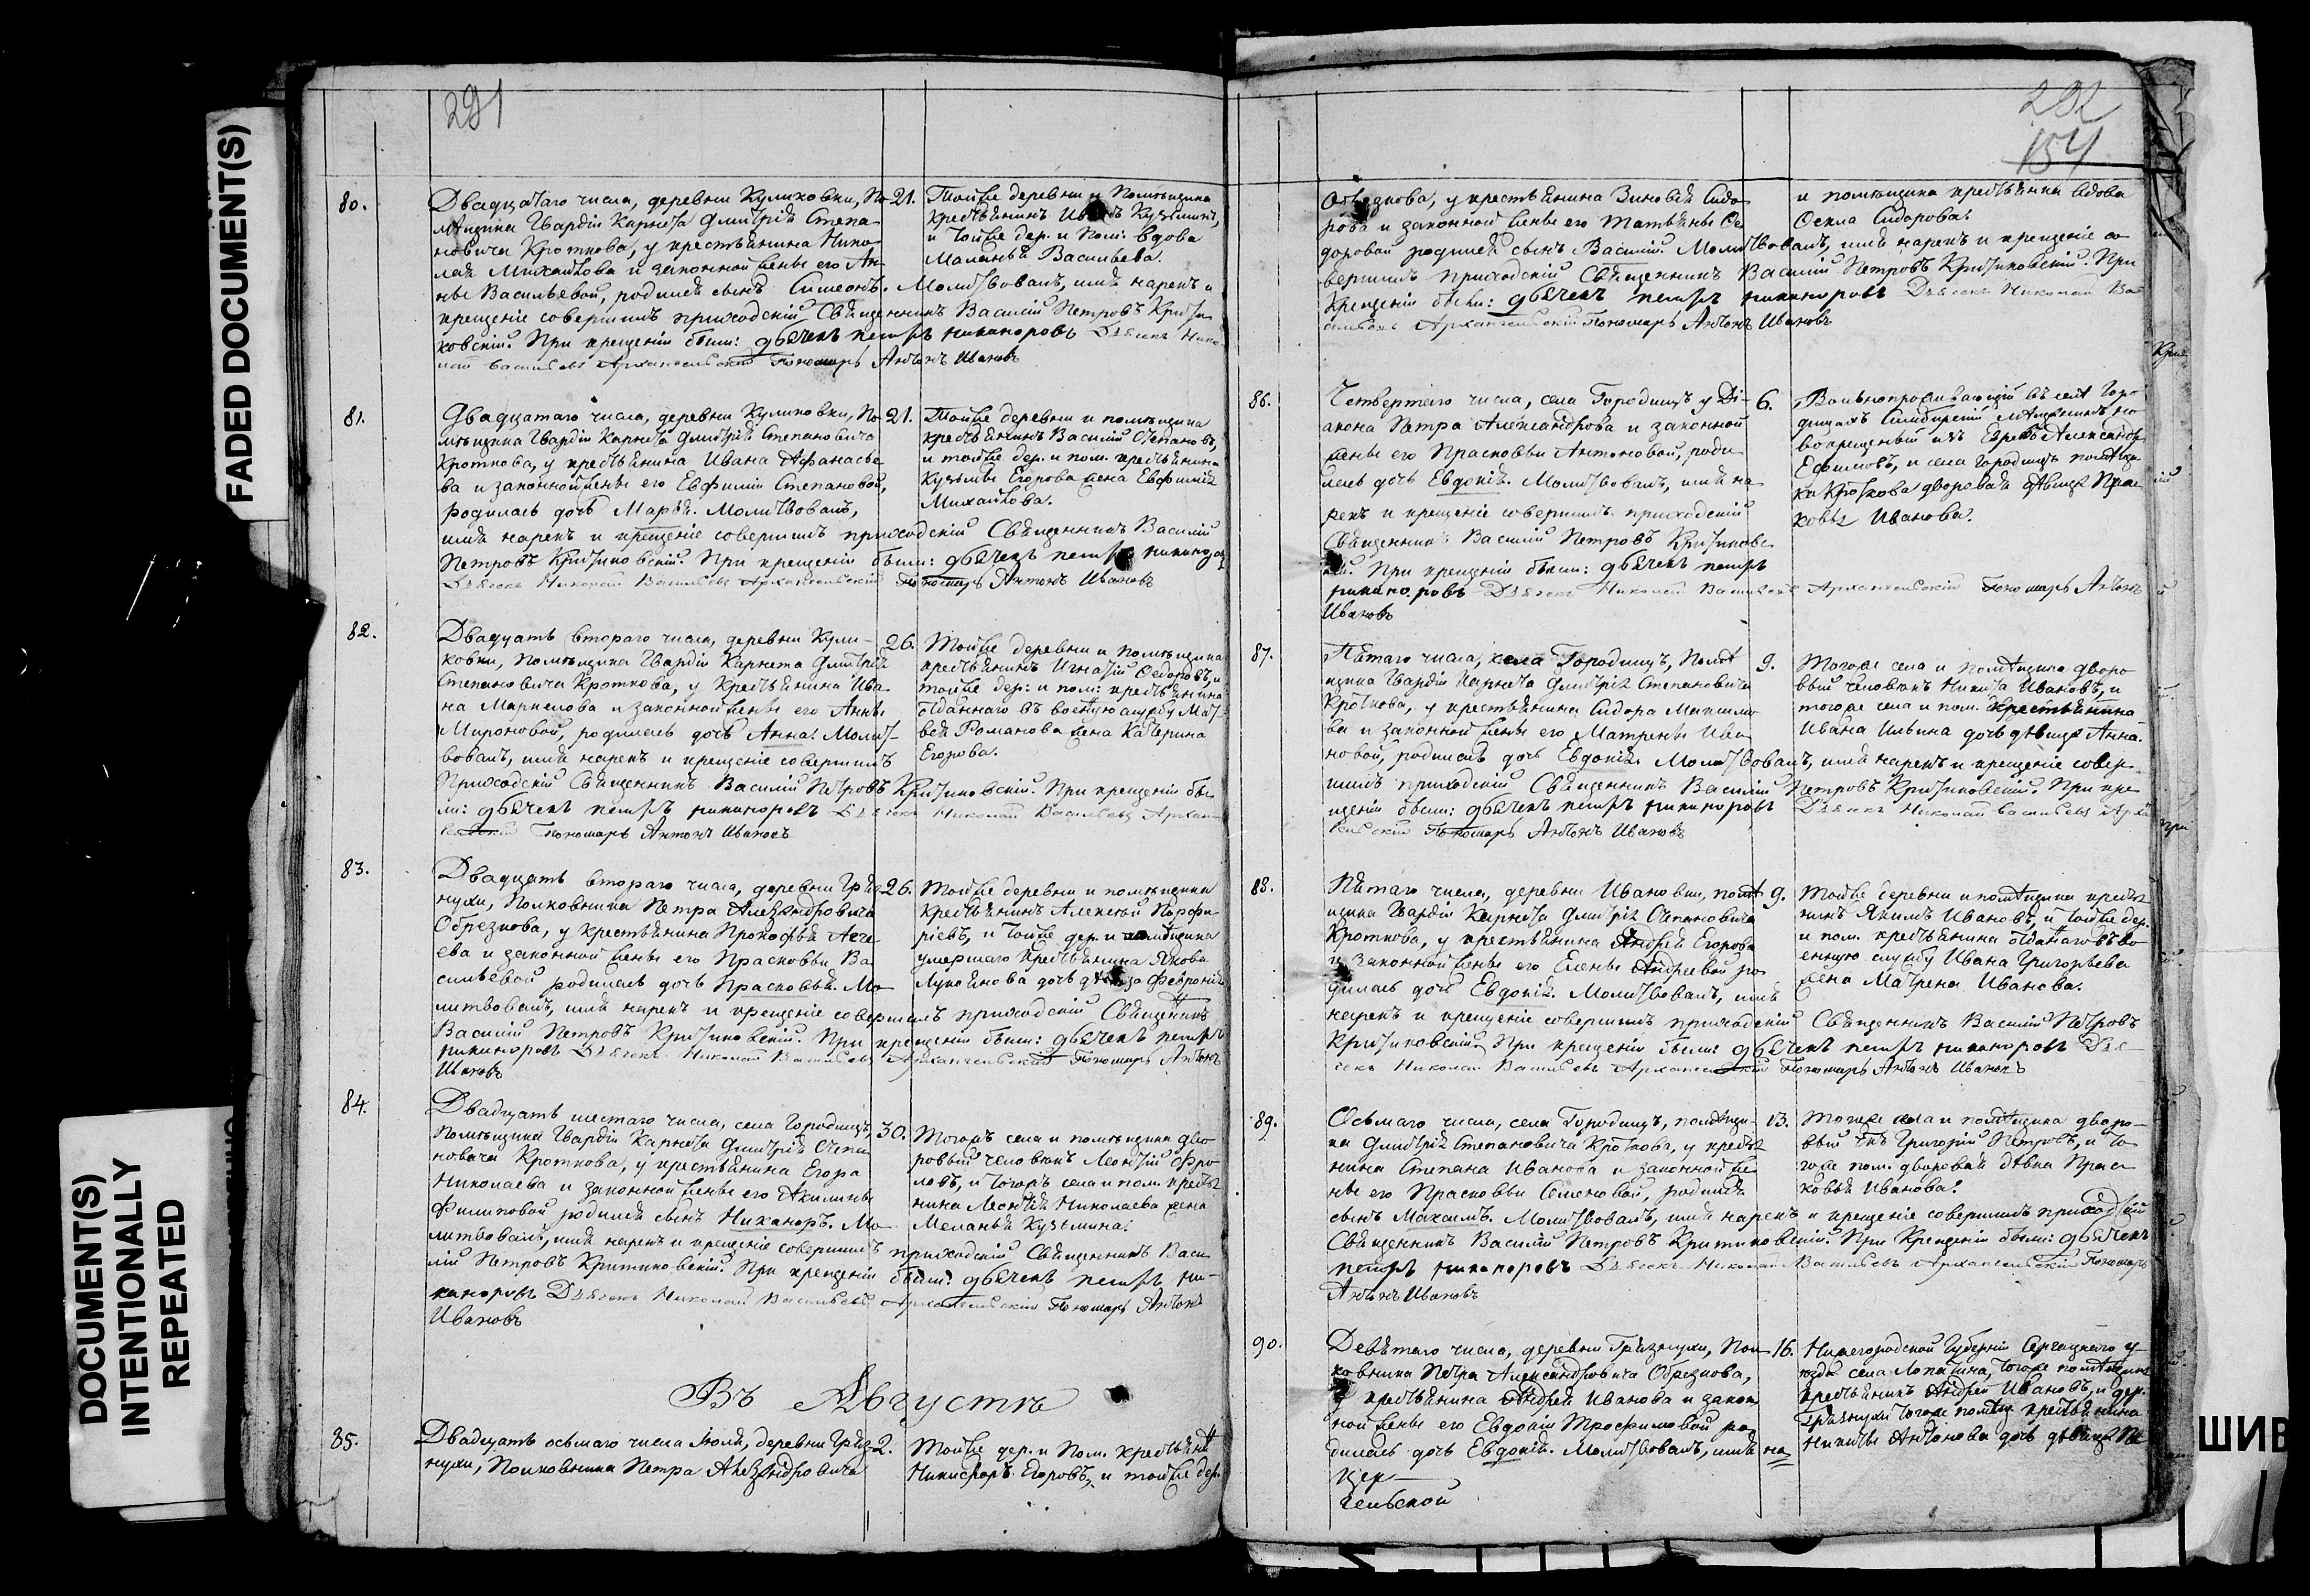 FADED DOCUMENT(S)
DOCUMENT(S)
INTENTIONALLY
REPEATED
291
80.
Двадцатаго числа, деревни Куликовки, По-
мѣщика Гвардіи Карнета Дмитрія Степа-
новича Кроткова, у крестьянина Нико-
лая Михайлова и законной жены его Ан-
ны Васильевой, родился сынъ Симеонъ. Молитвовалъ, имя нарекъ и
крещеніе совершилъ приходскій Священникъ Василій Петровъ Крити-
ковскій. При крещеніи были: дьячекъ петръ никаноровъ Дьячекъ Нико-
лай Васильевъ Архангельскій Пономарь Антонъ Ивановъ
21.
Тойже деревни и Помѣщика
крестьянинъ Иванъ Кузьминъ,
и тойже дер. и Пом. вдова
Маланья Васильева.
81.
Двадцатаго числа, деревни Куликовки, По-
мѣщика Гвардіи Карнета Дмитрія Степановича
Кроткова, у крестьянина Ивана Афанасье-
ва и законной жены его Евфиміи Степановой,
родилась дочь Марья. Молитвовалъ,
имя нарекъ и крещеніе совершилъ приходскій Священникъ Василій
Петровъ Критиковскій. При крещеніи были: дьячекъ петръ никаноровъ
Дьячекъ Николай Васильевъ Архангельскій Пономарь Антонъ Ивановъ
21.
Тойже деревни и помѣщика
крестьянинъ Василій Степановъ,
и тойже дер. и пом. крестьянина
Кузьмы Егорова жена Евфимія
Михайлова.
82.
Двадцать втораго числа, деревни Кули-
ковки, помѣщика Гвардіи Карнета Дмитрія
Степановича Кроткова, у крестьянина Ива-
на Маркелова и законной жены его Анны
Мироновой, родилась дочь Анна. Молит-
вовалъ, имя нарекъ и крещеніе совершилъ
Приходскій Священникъ Василій Петровъ Критиковскій. При крещеніи бы-
ли: дьячекъ петръ никаноровъ Дьячекъ Николай Васильевъ Архан-
гельскій Пономарь Антонъ Ивановъ
26.
Тойже деревни и помѣщика
крестьянинъ Игнатій Ѳедоровъ, и
тойже дер: и пом: крестьянина
отданнаго въ военную службу Мат-
вея Романова жена Катерина
Егорова.
83.
Двадцать втораго числа, деревни Гряз-
нухи, Полковника Петра Александровича
Обрезкова, у крестьянина Прокофья Агѣ-
ева и законной жены его Прасковьи Ва-
сильевой родилась дочь Прасковья. Мо-
литвовалъ, имя нарекъ и крещеніе совершилъ приходскій Священникъ
Василій Петровъ Критиковскій. При крещеніи были: дьячекъ петръ
никаноровъ Дьячекъ Николай Васильевъ Архангельскій Пономарь Антонъ
Ивановъ
26.
Тойже деревни и помѣщика
крестьянинъ Алексѣй Порфи-
ріевъ, и тойже дер. и помѣщика
умершаго крестьянина Якова
Лукоянова дочь дѣвица Февронія
84.
Двадцать шестаго числа, села Городищъ,
помѣщика Гвардіи Карнета Дмитрія Степа-
новича Кроткова, у крестьянина Егора
Николаева и законной жены его Акилины
Филиповой родился сынъ Никаноръ. Мо-
литвовалъ, имя нарекъ и крещеніе совершилъ приходскій Священникъ Васи-
лій Петровъ Критиковскій. При крещеніи были: дьячекъ петръ ни-
каноровъ Дьячекъ Николай Васильевъ Архангельскій Пономарь Антонъ
Ивановъ
30.
Тогожъ села и помѣщика дво-
ровый человѣкъ Леонтій Фро-
ловъ, и тогожъ села и пом. крестья-
нина Леонтія Николаева жена
Меланья Кузьмина.
Въ Августѣ
85.
Двадцать осьмаго числа Іюля, деревни Гряз-
нухи, Полковника Петра Александровича
2.
Тойже дер. и Пом. крестьянинъ
Никифоръ Егоровъ, и тойже дер.
292
154
Обрезкова, у крестьянина Зиновья Сидо-
рова и законной жены его Татьяны Ѳе-
доровой родился сынъ Василій. Молитвовалъ, имя нарекъ и крещеніе со-
вершилъ приходскій Священникъ Василій Петровъ Критиковскій. При
крещеніи были: дьячекъ петръ никаноровъ Дьячекъ Николай Ва-
сильевъ Архангельскій Пономарь Антонъ Ивановъ
и помѣщика крестьянка вдова
Ѳекла Сидорова.
86.
Четвертаго числа, села Городищъ у Ді-
акона Петра Александрова и законной
жены его Прасковьи Антоновой, роди-
лась дочь Евдокія. Молитвовалъ, имя на-
рекъ и крещеніе совершилъ приходскій
Священникъ Василій Петровъ Критиковс-
кій. При крещеніи были: дьячекъ петръ
никаноровъ Дьячекъ Николай Васильевъ Архангельскій Пономарь Антонъ
Ивановъ
6.
Вольнопроживающій въ селѣ Горо-
дищахъ Симбирскій мѣщанинъ, но-
вокрещеный изъ Евреевъ Александръ
Ефимовъ, и села Городищъ помѣщи-
ка Кроткова дворовая дѣвица Прас-
ковья Иванова.
87.
Пятаго числа, села Городищъ, Помѣ-
щика Гвардіи Карнета Дмитрія Степановича
Кроткова, у крестьянина Сидора Максимо-
ва и законной жены его Матрены Ива-
новой, родилась дочь Евдокія. Молитвовалъ, имя нарекъ и крещеніе совер-
шилъ приходскій Священникъ Василій Петровъ Критиковскій. При кре-
щеніи были: дьячекъ петръ никаноровъ Дьячекъ Николай Васильевъ Арха
гельскій Пономарь Антонъ Ивановъ
9.
Тогоже села и помѣщика дворо-
вый человѣкъ Никита Ивановъ, и
тогоже села и пом. крестьянина
Ивана Ильина дочь дѣвица Анна.
88.
Пятаго числа, деревни Ивановки, помѣ-
щика Гвардіи Карнета Дмитрія Степановича
Кроткова, у крестьянина Андрея Егорова
и законной жены его Елены Андреевой ро-
дилась дочь Евдокія. Молитвовалъ, имя
нарекъ и крещеніе совершилъ приходскій Священникъ Василій Петровъ
Критиковскій. При крещеніи были: дьячекъ петръ никаноровъ Дья-
чекъ Николай Васильевъ Архангельскій Пономарь Антонъ Ивановъ
9.
Тойже деревни и помѣщика крестья-
нинъ Якимъ Ивановъ, и тойже дер.
и пом. крестьянина отданнаго въ во-
енную службу Ивана Григорьева
жена Матрена Иванова.
89.
Осьмаго числа, села Городищъ, помѣщи-
ка Дмитрія Степановича Кроткова, у крестья-
нина Степана Иванова и законной же-
ны его Прасковьи Семеновой, родился
сынъ Максимъ. Молитвовалъ, имя нарекъ и крещеніе совершилъ приходскій
Священникъ Василій Петровъ Критиковскій. При Крещеніи были: дьячекъ
петръ никаноровъ Дьячекъ Николай Васильевъ Архангельскій Пономарь
Антонъ Ивановъ
13.
Тогоже села и помѣщика дворо-
вый члкъ Григорій Петровъ, и то-
гоже пом. дворовая дѣвка Прас-
ковья Иванова.
90.
Девятаго числа, деревни Грязнухи, Пол-
ковника Петра Александровича Обрезкова,
у крестьянина Андрея Иванова и закон-
ной жены его Евдокіи Трофимовой ро-
дилась дочь Евдокія. Молитвовалъ, имя на-
16.
Нижегородской Губерніи Сергацкаго у-
ѣзда села Лопатина, тогоже помѣщика
крестьянинъ Андрей Ивановъ, и дер.
Грязнухи тогоже помѣщ. крестьянина
Никиты Антонова дочь дѣвица Пе
Цер-
сельской
ШИВ